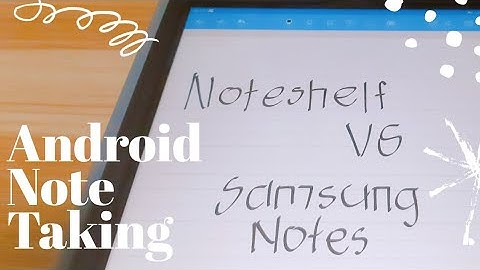 Android
Note
Taking
Noteshelf
VS
Samsung
Notes